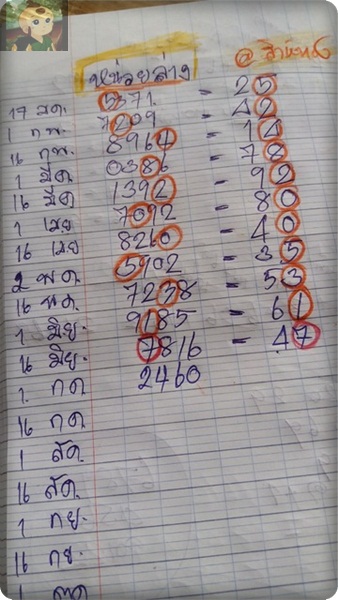 หน่วยล่าง @
17 มค. 5371 - 25
1 กพ. 7209 - 42
16 กพ. 8964 - 14
1 มีค 0386 - 78
16 มีค 1392 - 92
1 เมย 7092 - 80
16 เมย 8260 - 40
2 พค. 5902 - 35
16 พค. 7238 - 53
1 มิย. 9185 - 61
16 มิย. 7816 - 47
1. กค 2460
16 กค
1 สค.
16 สค.
1 กย.
16 กย.
1 ตค